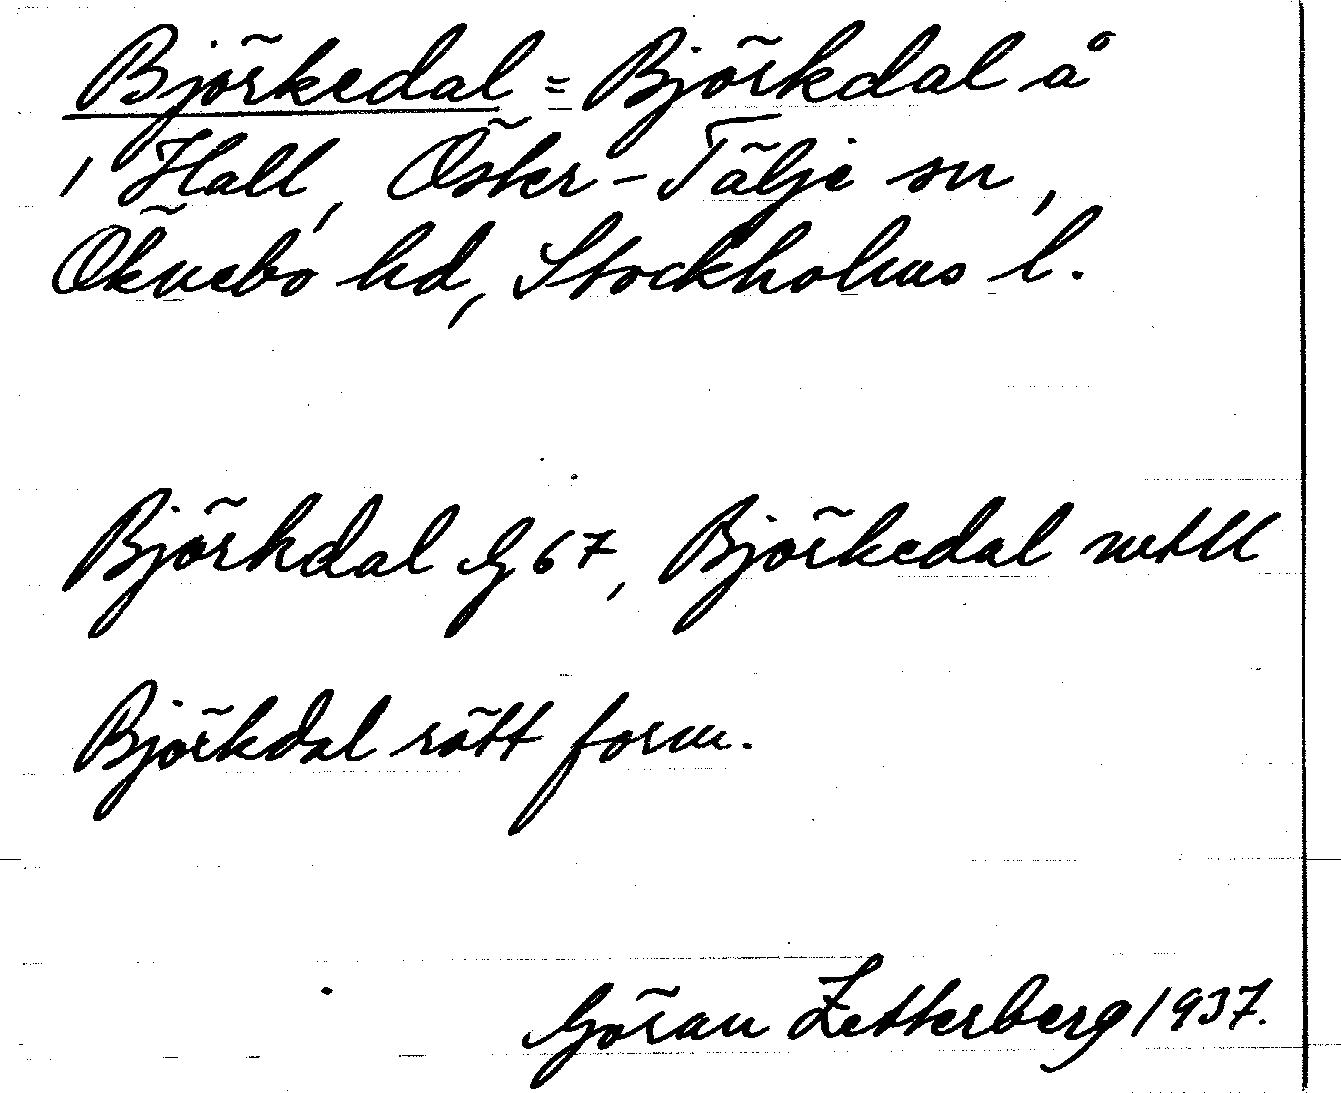 Björkedal = Björkdal å
1 Hall, Öster-Tälje sn,
Öknebo hd, Stockholms l.
Björkdal G 67, Björkedal mtll
Björkdal rätt form.
Göran Zetterberg 1937.